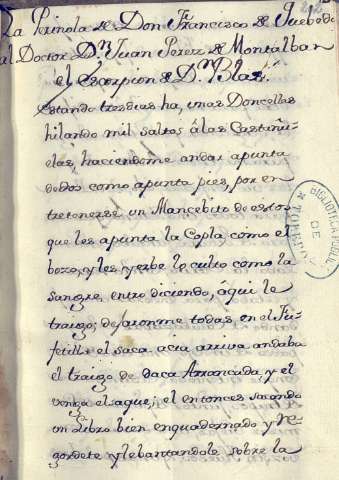 La Perinola de Don Franco de Quebedo
al Doctor Dn Juan Perez de Montalban
el escorpion de Dn Blas.
Estando tres dias ha, unas Doncellas
hilando mil saltos á las Castañu-
elas, haciendome andar apunta
dedos como apunta pies, por en
tretenerse un Mancebito de estos
que les apunta la Copla como el
bozo, y les yerbe lo culto como la
sangre, entro diciendo, áqui le
traigo; dejaronme todas en el
el saca acia arriva andaba
el traigo de daca Arrancada, y el
venga el aque; el entonces sacando
un Libro bien enquadernado y re-
gordete y lebantandole sobre la
BIBLIOTECA PUBLICA
DE